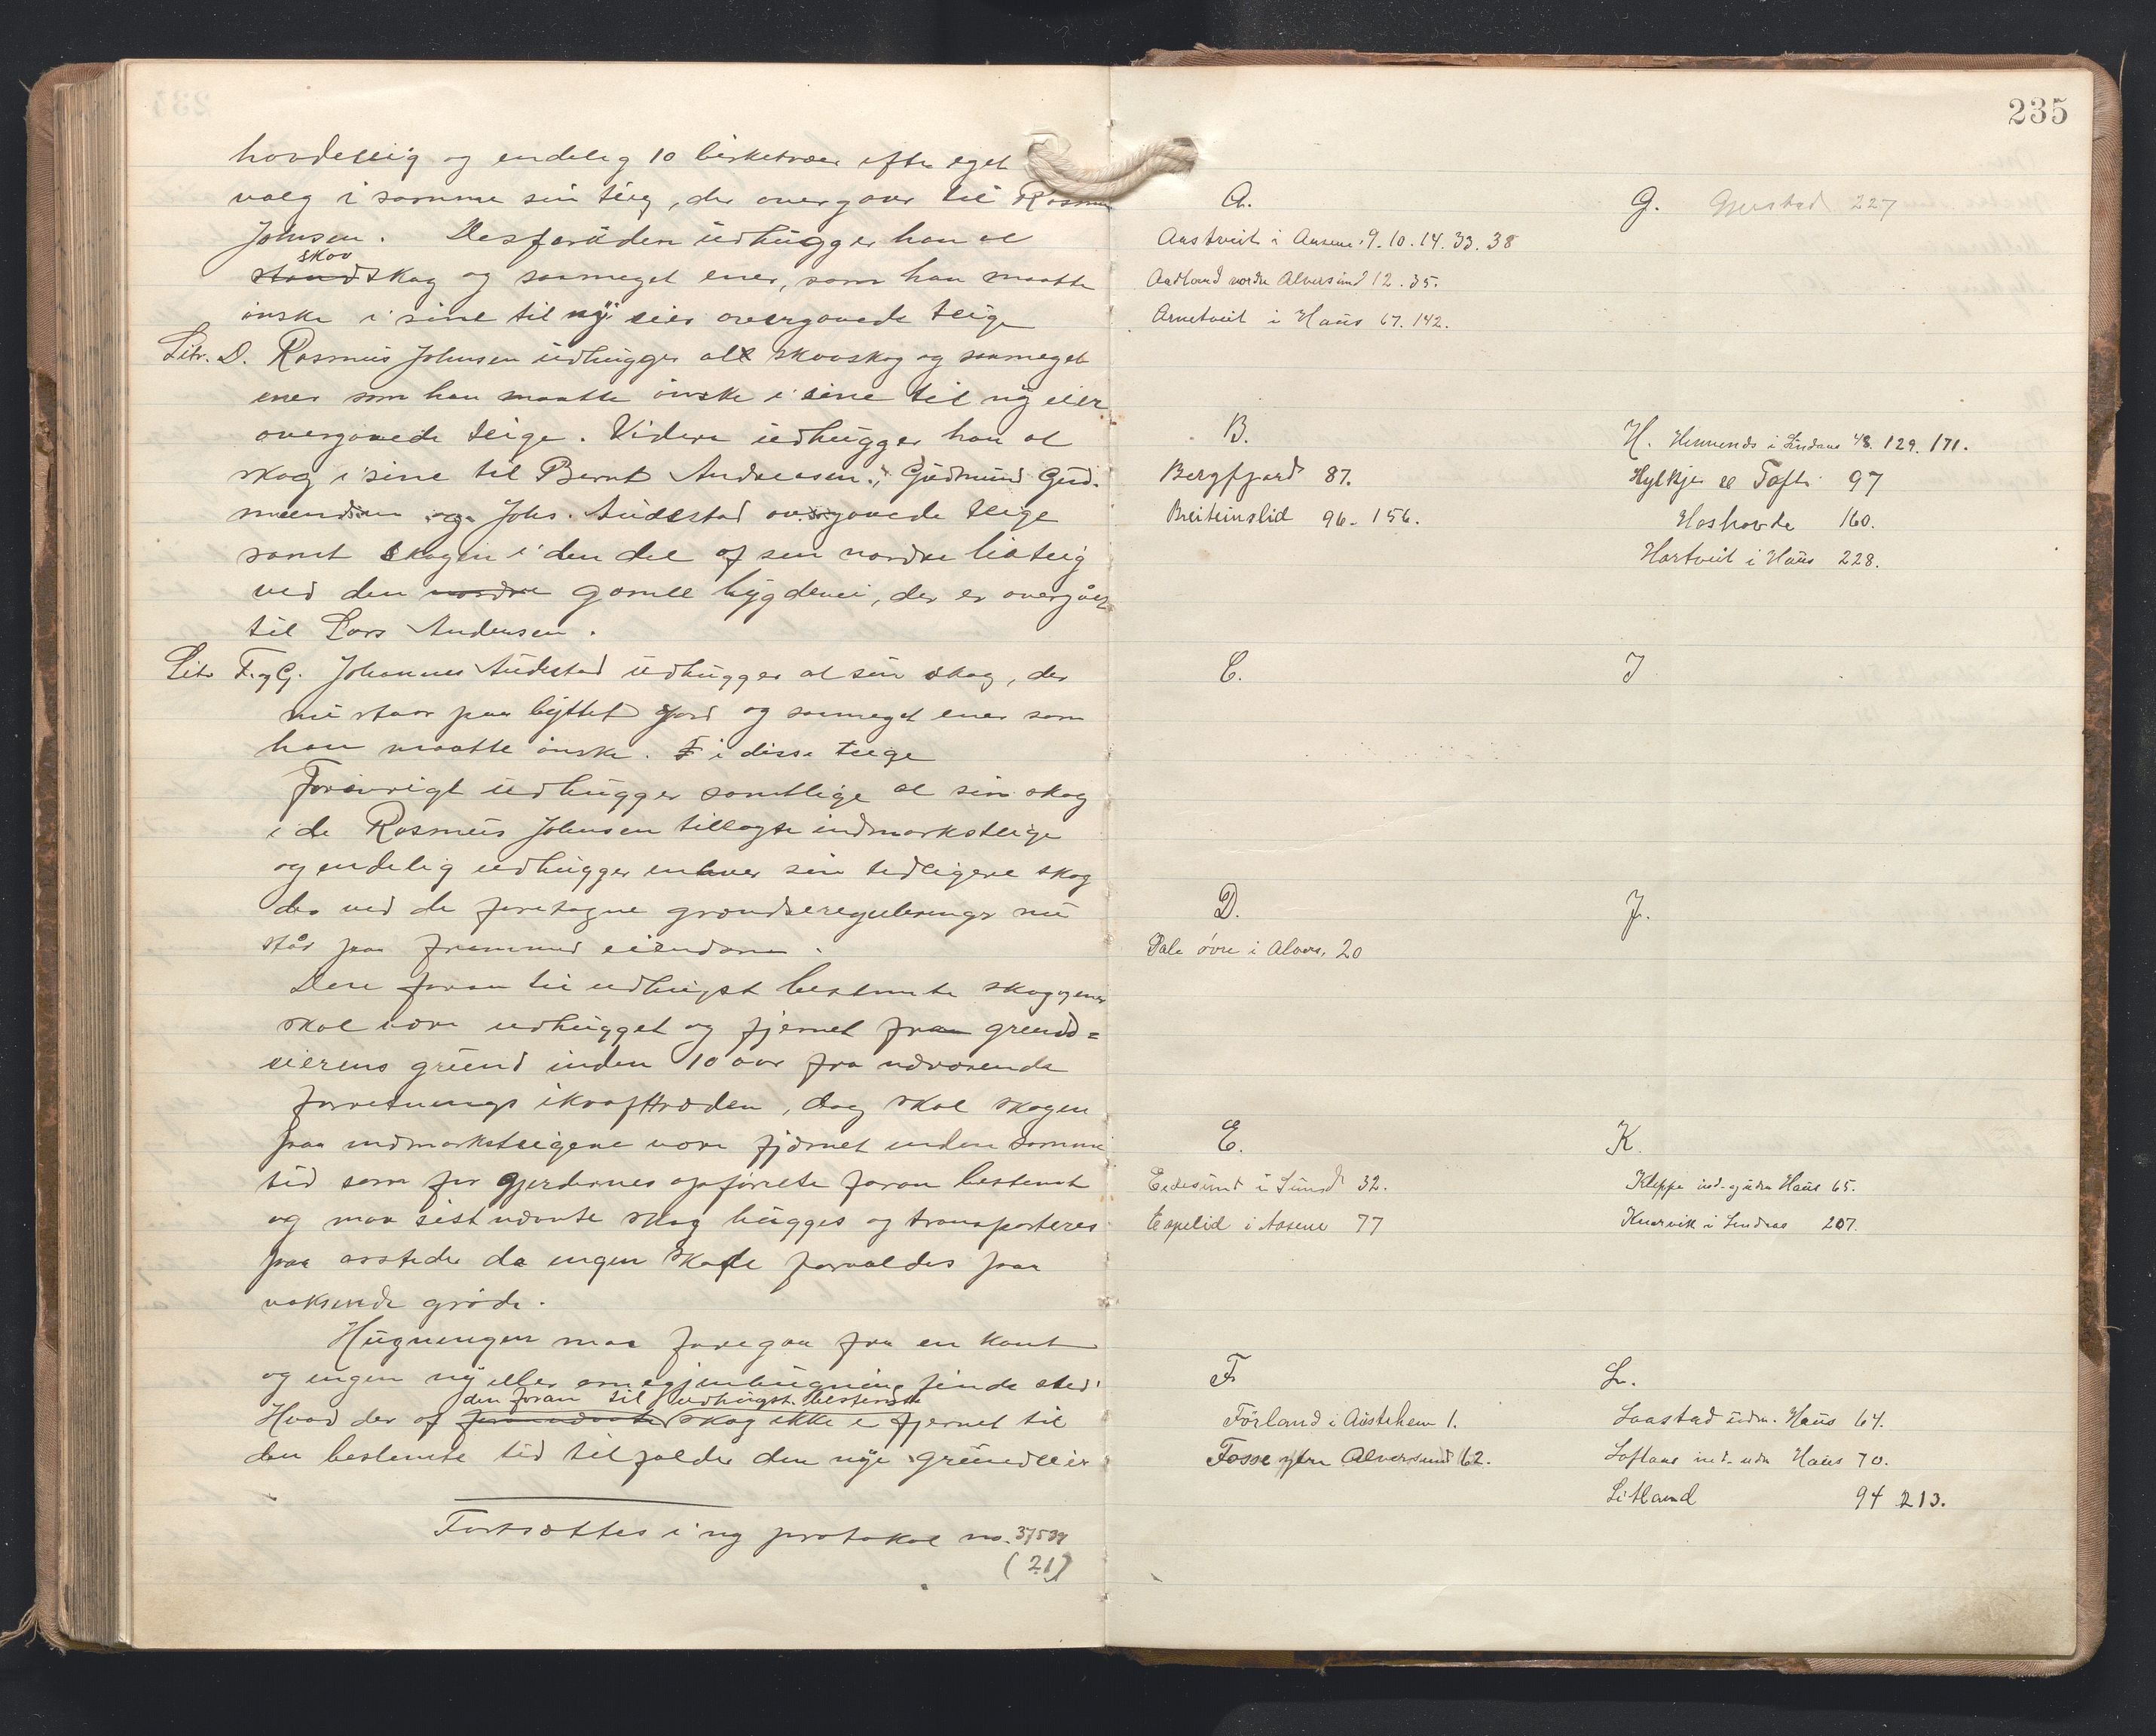 og endelig 10 birketrær efter eget
valg i samme sin teig, der overgaar til Rasmus
Johnsen. Desforuden udhugger han al
skov
skog og saameget ener, som han maatte
ønske i sine til ny eier overgaaede teige
Litr. D. Rasmus Johnsen udhugger alt skovskog og saameget
ener som han maatte ønske i sine til ny eier
overgaaede teige. Videre udhugger han al
skog i sine til Bernt Andreasen, Gudmund Gud-
mundsen og Johs. Audestad overgaaede teige
samt skogen i den del af sin nordre liateig
ved den nordre gamle bygdevei, der er overgået
til Lars Andersen.
Litr F. og G. Johannes Audestad udhugger al sin skog, der
nu staar paa byttet jord og saameget ener som
han maatte ønske. i disse teige
Forøvrigt udhugger samtlige al sin skog
i de Rasmus Johnsen tillagte indmarksteige
og endelig udhugger enhver sin tidligere skog
der ved de foretagne grændsereguleringer nu
står paa fremmed eiendom.
Den foran til udhugst bestemte skog og ener
skal være udhugget og fjernet fra grund=
eierens grund inden 10 aar fra nærværende
forretnings ikrafttræden, dog skal skogen
paa indmarksteigene være fjærnet inden samme
tid som for gjerdernes opførelse foran bestemt
og maa sistnævnte skog hugges og transporteres
paa aarstider da ingen skade forvoldes paa
voksende grøde.
Hugningen maa foregaa fra en kant
og ingen ny eller omigjenhugning finde sted.
den foran til udhugst bestemte
Hvad der af forannævnte skog ikke er fjernet til
den bestemte tid tilfalder den nye grundeier
Fortsættes i ny protokol no. 37539
(21)
235
A.
Austveit i Aasene 9. 10. 14. 33. 38
Aadland nordre Alversund 12. 35.
Arnetveit i Haus 67. 142.
B.
Bergfjord 87.
Breiteinslid 96. 156.
C.
D.
Dale øvre i Alvers. 20
E.
Eidesund i Sund 32.
Espelid i Aasene 77
F
Förland i Austrheim 1.
Fosse ytre Alversund 62.
G. 227
H. i Lindaas 48. 129. 171.
Hylkje el Tofte 97
160.
Hartveit i Haus 228.
I
J.
K.
Kleppe ind- og udre Haus 65.
Knarvik i Lindaas 207.
L.
Laastad udre. Haus 64.
Loftaas ind- udre Haus 70.
Litland 94 213.